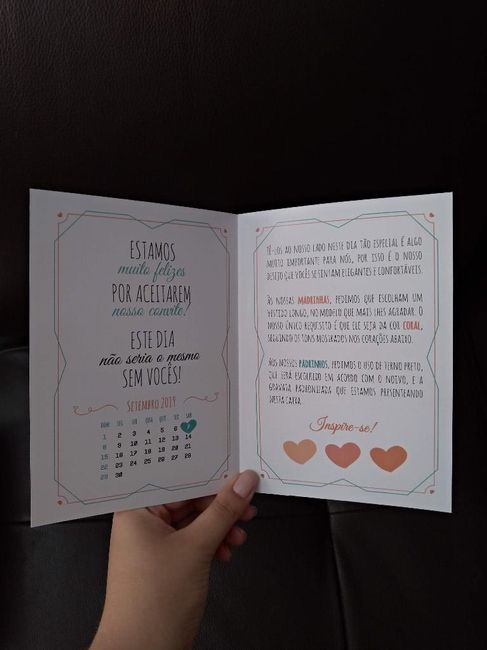 ESTAMOS
muito felizes
POR ACEITAREM
nosso convite!
ESTE DIA
não seria o mesmo
SEM VOCÊS!
SETEMBRO 2019
DOM SEG TER QUA QUI SEX SAB
1 2 3 4 5 6 7
8 9 10 11 12 13 14
15 16 17 18 19 20 21
22 23 24 25 26 27 28
29 30
TÊ-LOS AO NOSSO LADO NESTE DIA TÃO ESPECIAL É ALGO
MUITO IMPORTANTE PARA NÓS, POR ISSO É O NOSSO
DESEJO QUE VOCÊS SE SINTAM ELEGANTES E CONFORTÁVEIS.
ÀS NOSSAS MADRINHAS, PEDIMOS QUE ESCOLHAM UM
VESTIDO LONGO, NO MODELO QUE MAIS LHES AGRADAR. O
NOSSO ÚNICO REQUISITO É QUE ELE SEJA DA COR CORAL,
SEGUINDO OS TONS MOSTRADOS NOS CORAÇÕES ABAIXO.
AOS NOSSOS PADRINHOS, PEDIMOS O USO DE TERNO PRETO,
QUE SERÁ ESCOLHIDO EM ACORDO COM O NOIVO, E A
GRAVATA PADRONIZADA QUE ESTAMOS PRESENTEANDO
NESTA CAIXA.
Inspire-se!